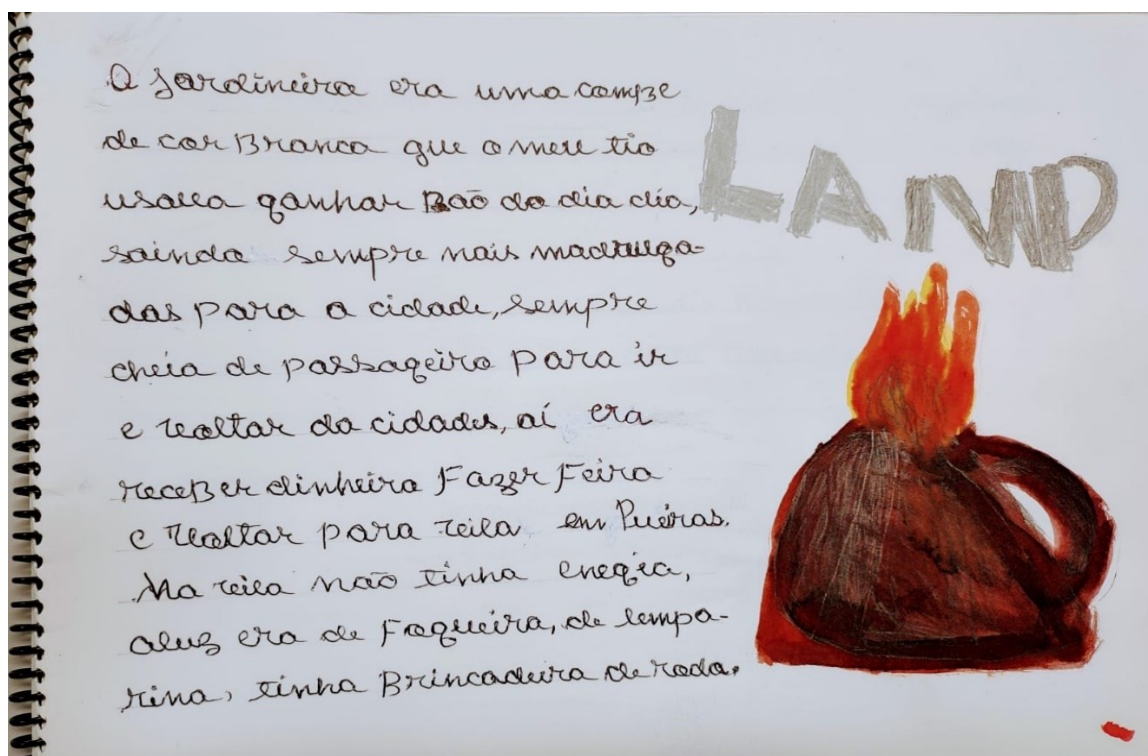 A Jardineira era uma compe
de cor Branca que o meu tio
usava ganhar Pão do dia dia,
sainda sempre nais madruga-
das para a cidade, sempre
cheia de passageiro para ir
e voltar da cidades, aí era
receber dinheira Fazer Feira
e voltar para vila em Pueiras.
Na vila não tinha enegia,
aluz era de Fogueira, de lempa-
rina, tinha Brincadeira de roda.
LAND